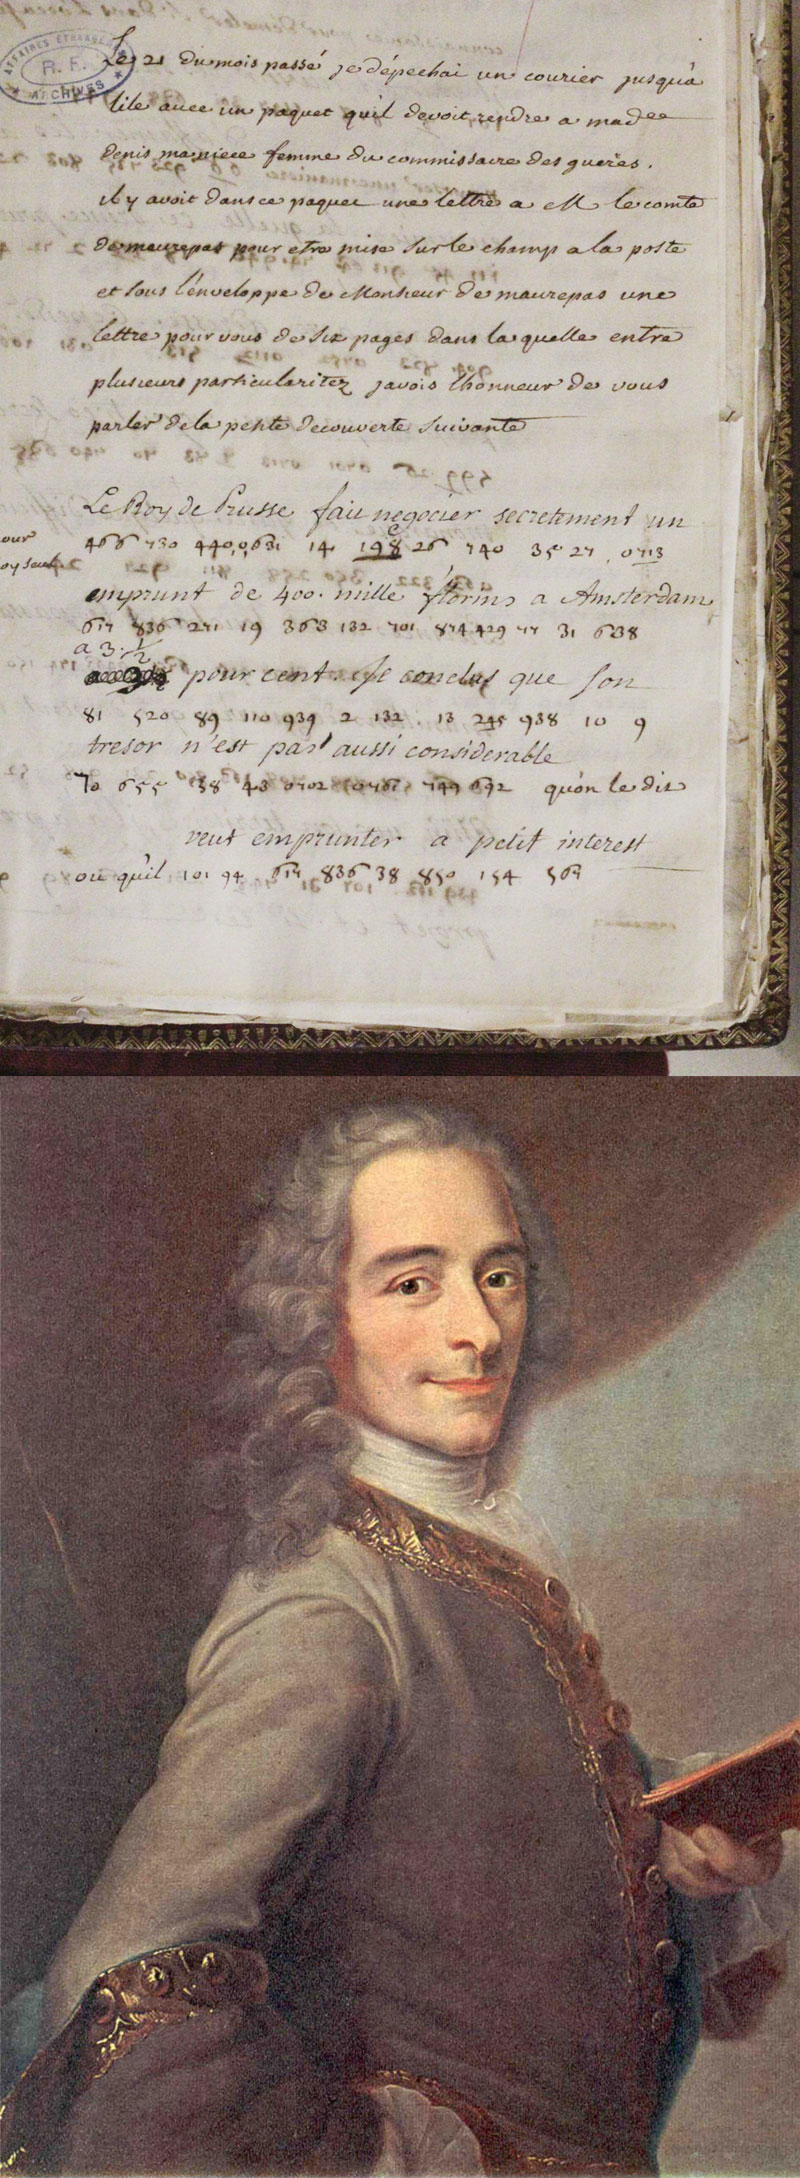 AFFAIRES ETRANGERES
R. F.
ARCHIVES
Le 21 du mois passé je dépechai un courier jusqu'a
lile avec un paquet quil devoit rendre a madee
denis ma niece femme du commissaire des gueres.
il y avoit dans ce paquet une lettre a M le comte
de maurepas pour etre mise sur le champ a la poste
et sous l'enveloppe de Monsieur de maurepas une
lettre pour vous de six pages dans la quelle entre
plusieurs particularitez javois lhonneur de vous
parler de la petite decouverte suivante
Le Roy de Prusse fait negocier secretement un
our 466 730 440,0631 14 198 26 740 35 27 0713
oy seul
emprunt de 400. mille florins a Amsterdam
617 836 271 19 363 132 701 874 429 77 31 638
a 3 1/2
pour cent. Je conclus que son
81 520 89 110 939 2 132 13 245 938 10 9
tresor n'est pas aussi considerable
70 655 38 43 0702 0761 749 692 quon le dit
veut emprunter a petit interest
ou quil 101 94 617 836 38 850 154 567